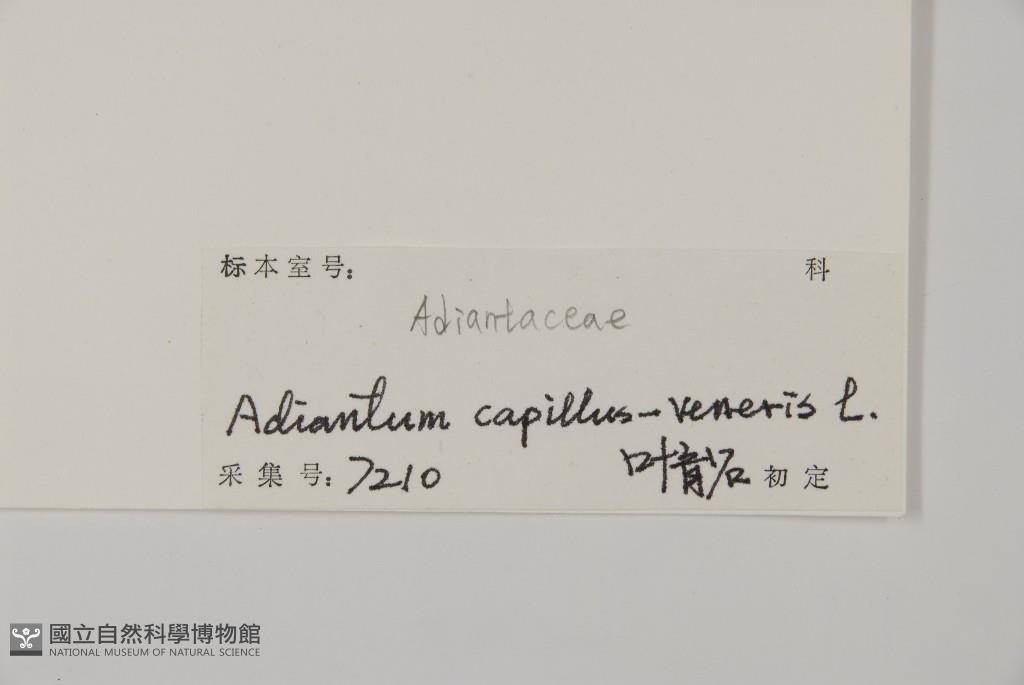 标本室号： 科
Adiantaceae
Adiantum capillus-veneris L.
采集号：7210 叶育石 初定
國立自然科學博物館
NATIONAL MUSEUM OF NATURAL SCIENCE